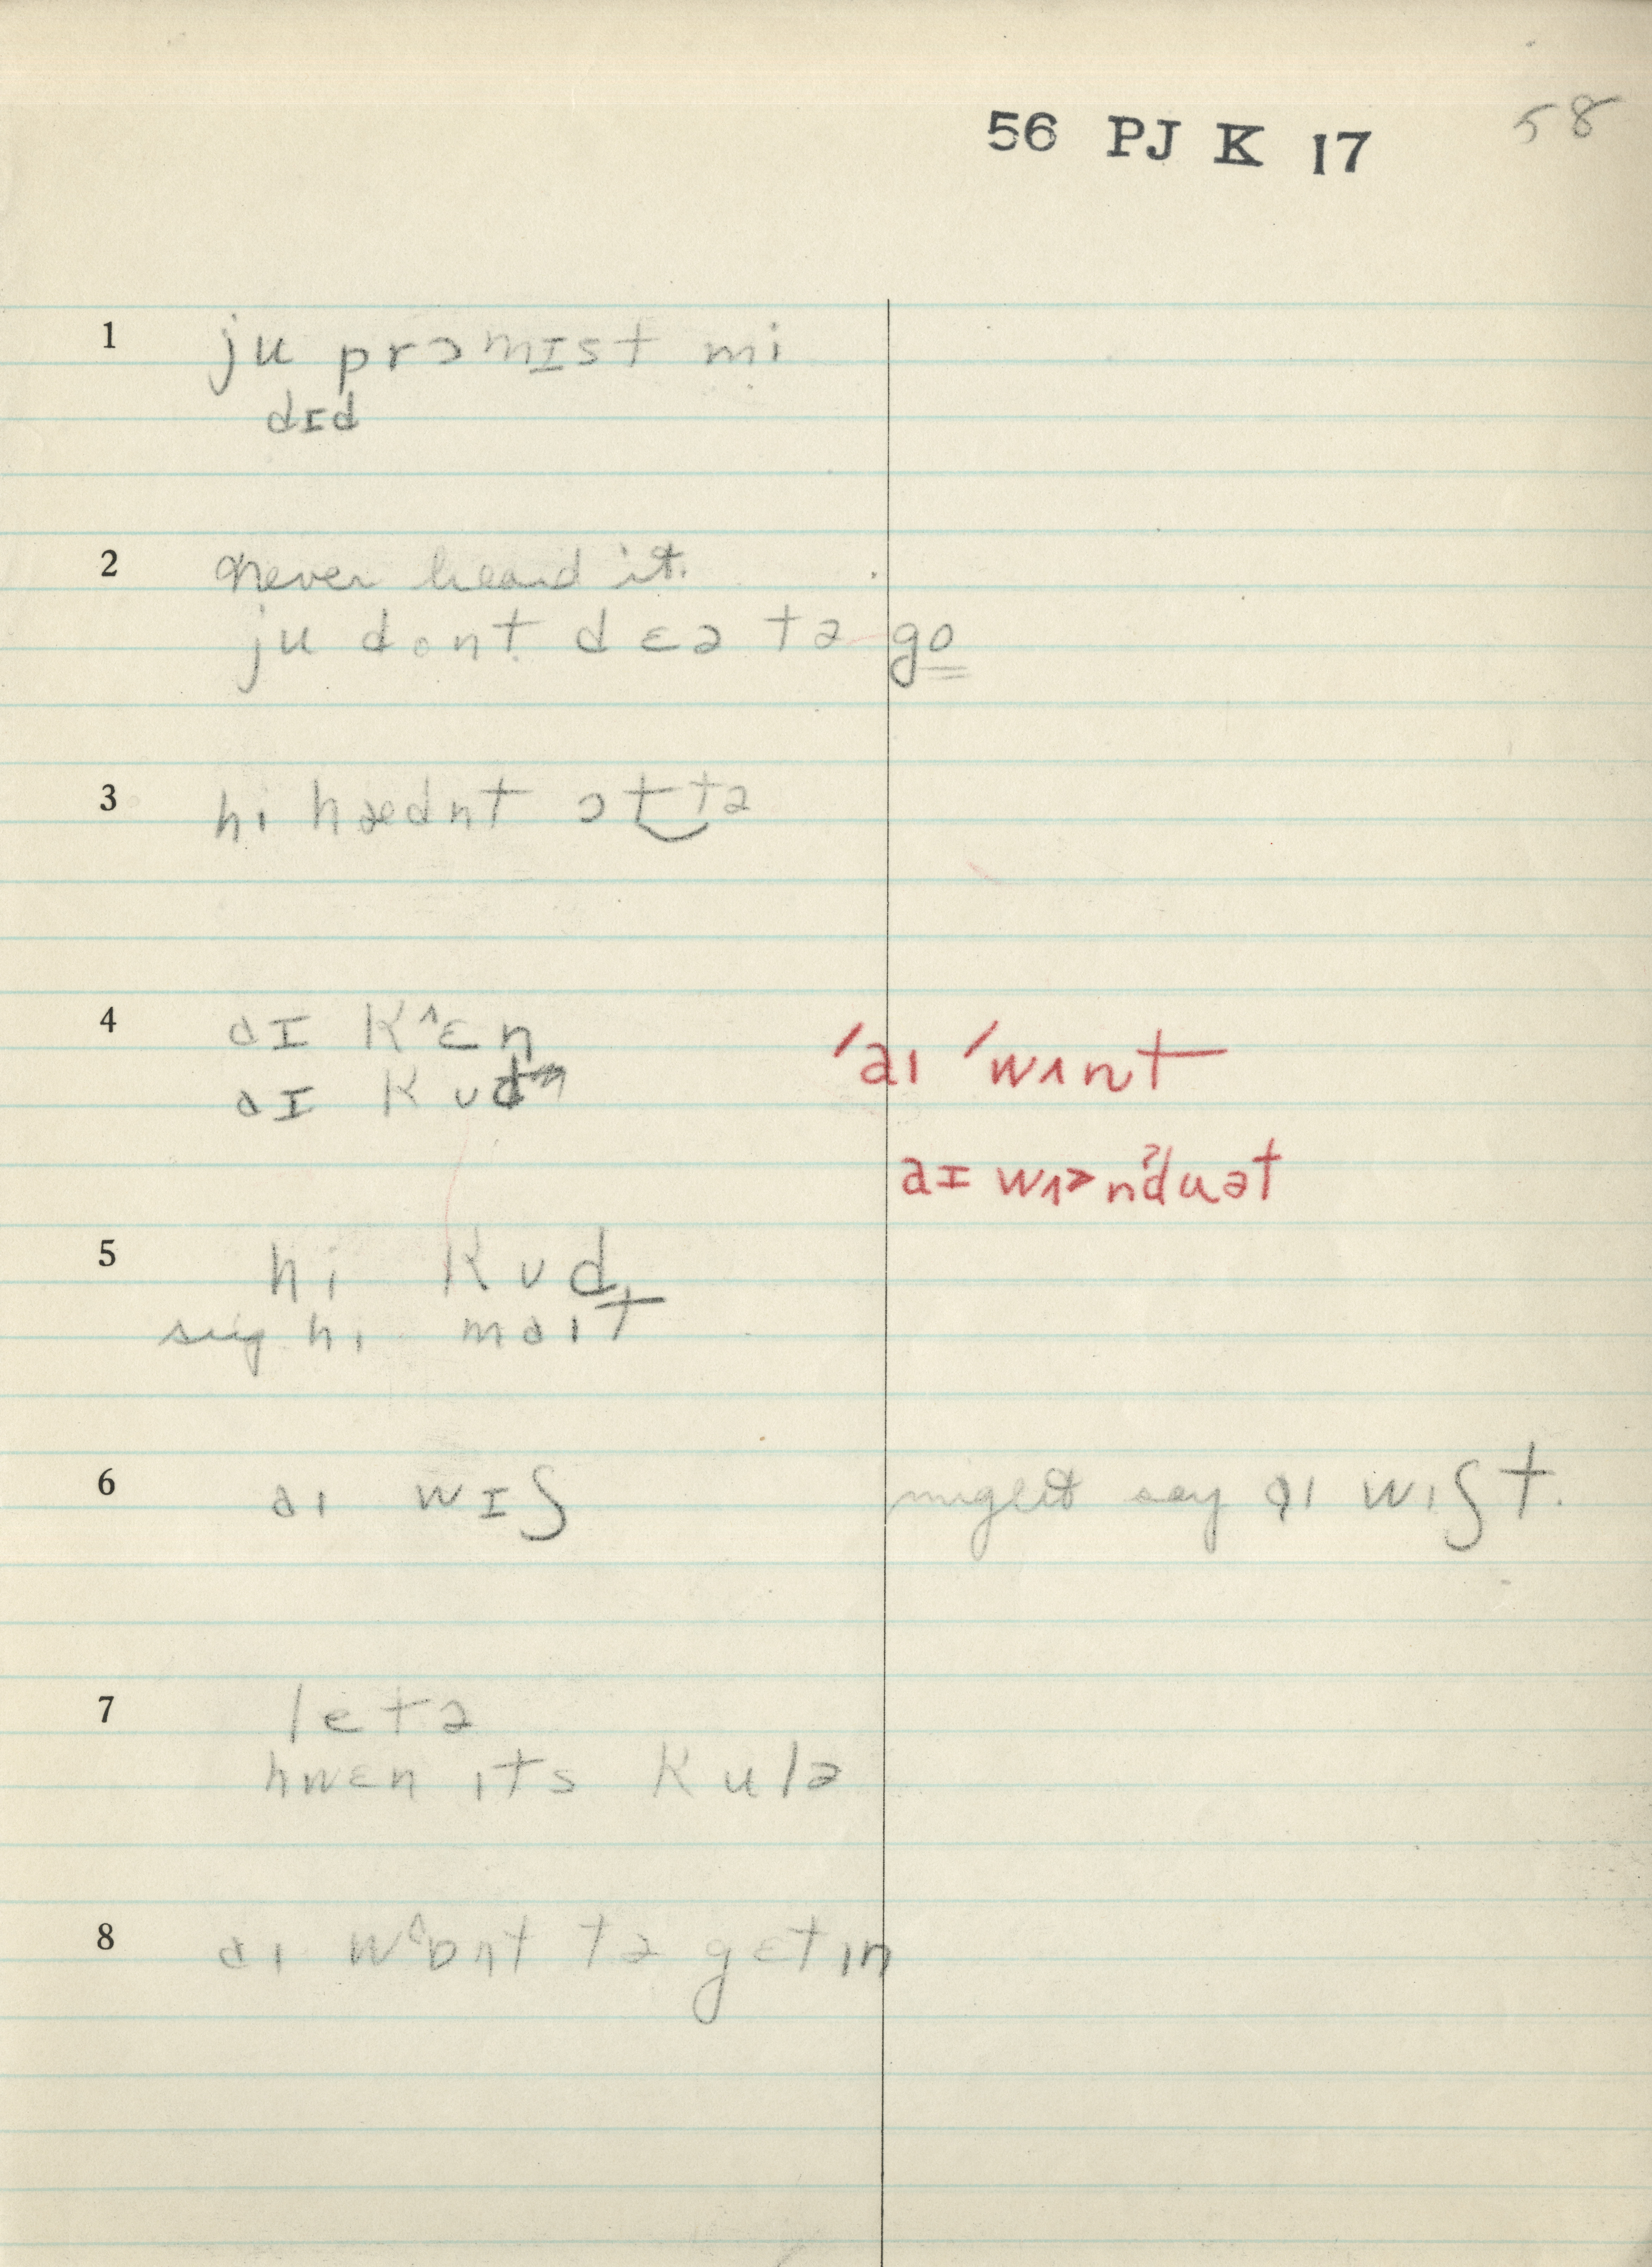 56 PJ K 17
58
1 ju prɔmɪst mi
dɪd
2 never heard it.
ju dont dɛə tə go
3 hi hædnt ɔt‿tə
4 aɪ kˆɛn
aɪ kud
ˈaı ˈwʌnt
aɪ wʌ>nˀduət
5 hi kud
sug hı maıt
6 aı wɪʃ might say aı wıʃt.
7 letə
hwɛn ıts kulə
8 aı wˆɒnt tə gɛt ın